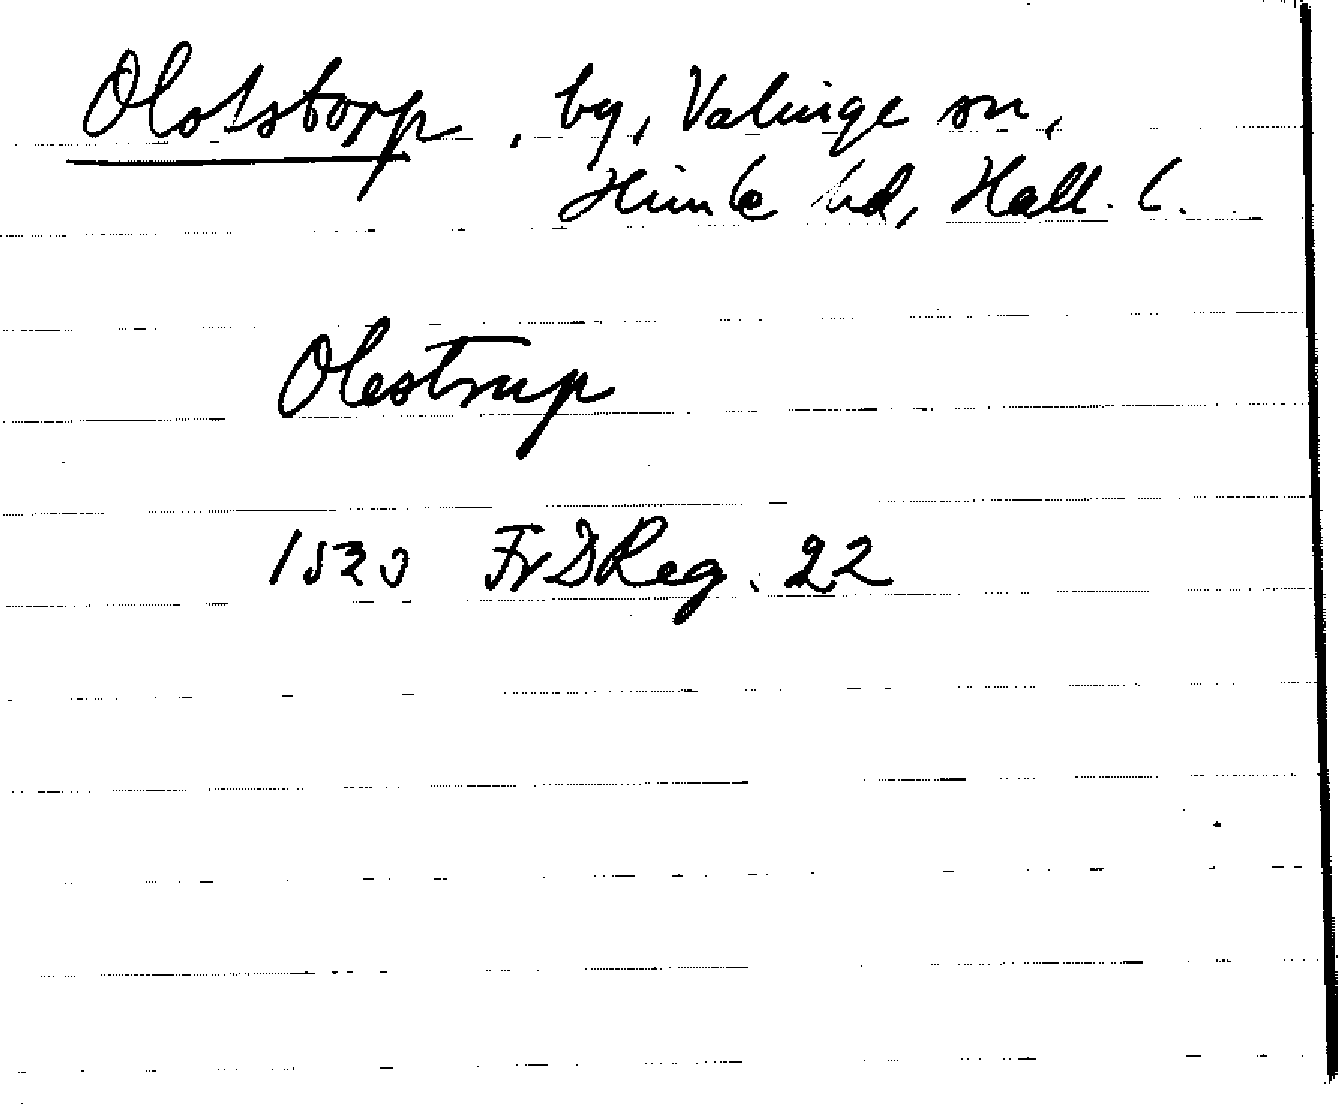 Olofstorp, by, Valinge sn,
Himle hd, Hall. l.
Olestrup
1530 FrDReg. 22